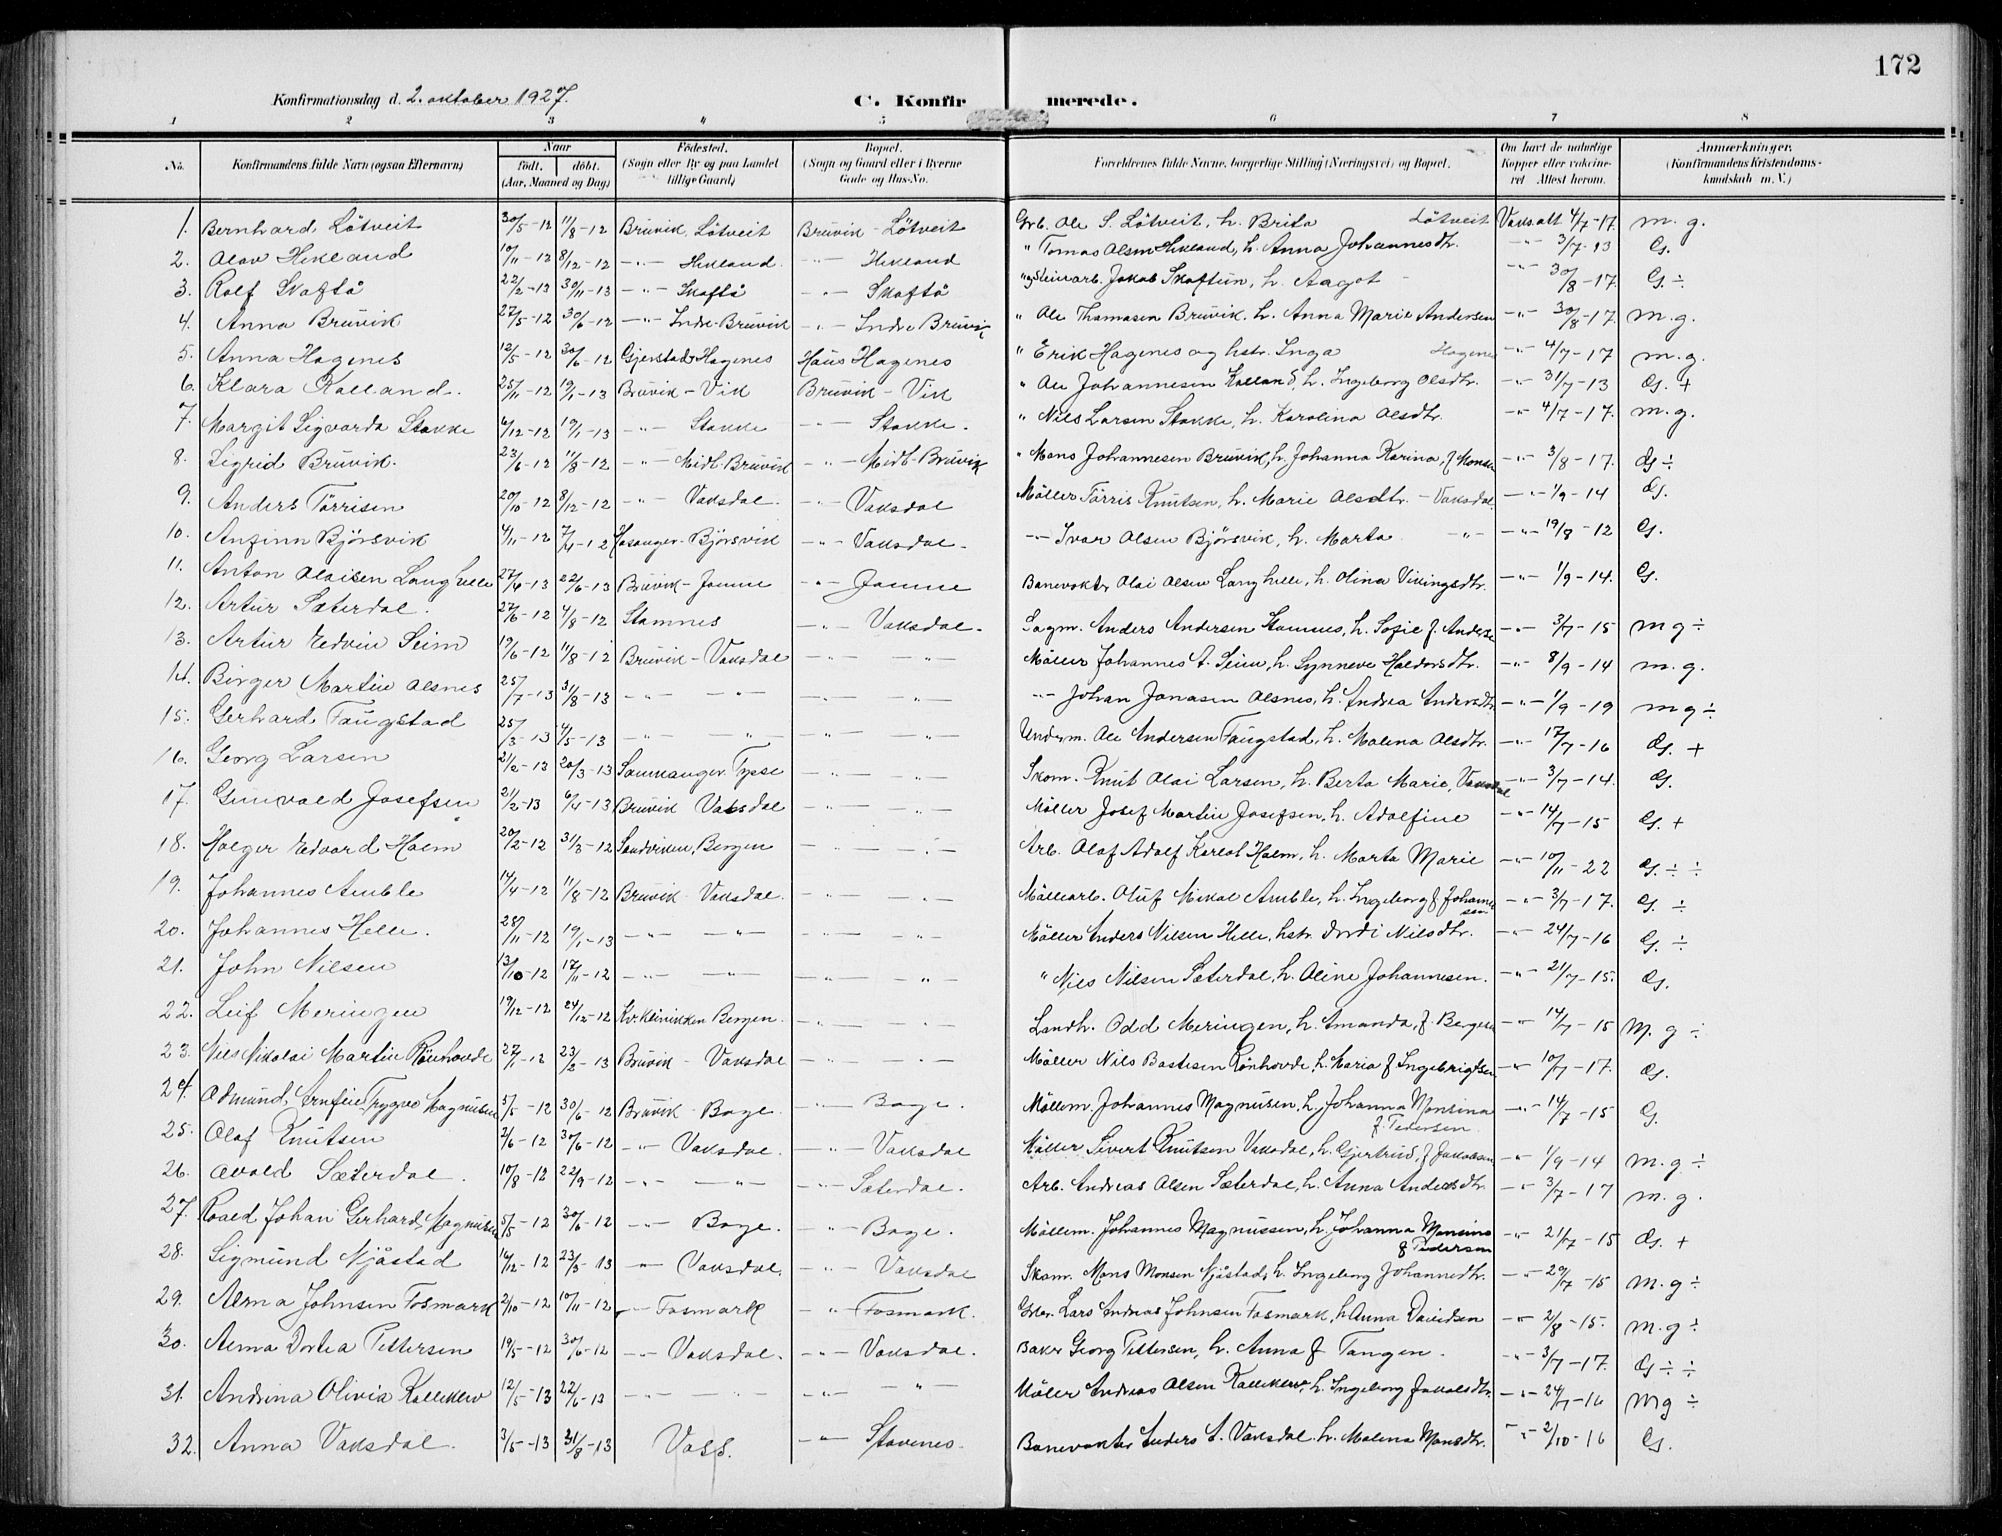 172
Konfirmationsdag d. 2. oktober 1927. C. Konfirmerede.
1 2 3 4 5 6 7 8
No. Konfirmandens fulde Navn (ogsaa Efternavn) Naar født. døbt. (Aar, Maaned og Dag) Födested. (Sogn eller By og paa Landet tillige Gaard) Bopæl. (Sogn og Gaard eller i Byerne Gade og Hus-No. Forældrenes fulde Navne, borgerlige Stilling (Næringsvei) og Bopæl. Om havt de naturlige Kopper eller vaccineret Attest herom. Anmærkninger. (Konfirmandens Kristendomskundskab m. V.)
1. Bernhard Lötveit 30/5-12 11/8-12 Bruvik, Lötveit Bruvik - Lötveit Grb. Ole S. Lötveit, h. Brita Lötveit Vaks.att 4/7-17. m. g.
2. Olav Hekland 10/11-12 8/12-12 -"- Hekland. -"- Hekland " Tomas Olsen Hekland, h. Anna Johannesdtr. -"- 3/7-13 G.
3. Rolf Skaftå 22/2-13 30/11-13 -"- Skaftå -"- Skaftå "og Steinarb. Jakob Skaftun, h. Aagot - -"- 30/8-17. G ÷
4. Anna Bruvik 27/5-12 30/6-12 -"- Indre-Bruvik -"- Indre Bruvik " Ole Thomasen Bruvik. h. Anna Marie Andersen -"- 30/8-17. m. g.
5. Anna Hagenes 12/5-12 30/6-12 Gjerstad Hagenes Haus Hagenes " Erik Hagenes og hstr. Inga Hagenes -"- 4/7-17 m. g.
6. Klara Kalland. 25/11-12 19/1-13 Bruvik - Vik Bruvik - Vik " Ole Johannesen Kalland, h. Ingeborg Olsdtr. -"- 31/7-13 G. +
7. Margit Sigvarda Stakke 6/12-12 19/1-13 -"- Stakke -"- Stakke. " Nils Larsen Stakke, h. Karolina Olsdtr. -"- 4/7-17. m. g.
8. Sigrid Bruvik. 23/6-12 11/8-12 -"- Midt-Bruvik -"- Midt-Bruvik " Mons Johannesen Bruvik, h. Johanna Karina, f Monsen -"- 3/8-17. G ÷
9. Anders Törrisen 20/10-12 8/12-12 -"- Vaksdal. -"- Vaksdal Möller Törris Knutsen, h. Marie Olsdtr. - Vaksdal -"- 1/9-14 G.
10. Anfinn Björsvik 4/11-12 7/4-12 Hosanger-Björsvik -"- Vaksdal. -"- Ivar Olsen Björsvik, h. Marta -"- -"- 19/8-12 G.
11. Anton Olaisen Langhelle 27/4-13 22/6-13 Bruvik - Jamne -"- Jamne Banevokter Olai Olsen Langhelle, h. Olina Vikingsdtr. -"- 1/9-14. G.
12. Artur Sæterdal. 27/6-12 4/8-12 Stamnes -"- Vaksdal. Sagm. Anders Andersen Stamnes, h. Sofie f. Andersen -"- 3/7-15 m g ÷
13. Artur Edvin Seim 19/6-12 11/8-12 Bruvik - Vaksdal -"- -"- Möller Johannes A. Seim, h. Synneve Haldorsdtr. -"- 8/9-14 m. g.
14. Birger Martin Olsnes 25/7-13 31/8-13 -"- -"- -"- -"- -"- Johan Jonasen Olsnes, h. Andrea Andersdtr. -"- 1/9-19 m g ÷
15. Gerhard Faugstad 25/3-13 4/5-13 -"- -"- -"- -"- Underm. Ole Andersen Faugstad, h. Malena Olsdtr. -"- 17/7-16 G. +
16. Georg Larsen 21/2-13 20/3-13 Samnanger. Tysse -"- -"- Skom. Knut Olai Larsen, h. Berta Marie, Vaksdal -"- 3/7-14. G.
17. Gunvald Josefsen 21/2-13 6/4-13 Bruvik Vaksdal -"- -"- Möller Josef Martin Josefsen, h. Adolfine -"- 14/7-15 G. +
18. Holger Edvard Holm 20/2-12 31/3-12 Sandviken, Bergen -"- -"- Arb. Olaf Adolf Karlot Holm, h. Marta Marie -"- 10/11-22 G. ÷ ÷
19. Johannes Amble 14/4-12 11/8-12 Bruvik - Vaksdal. -"- -"- Möllearb. Oluf Mikal Amble, h. Ingeborg f Johannessen -"- 3/7-17. G. ÷
20. Johannes Helle. 28/11-12 19/1-13 -"- -"- -"- -"- Möller Anders Nilsen Helle, hstr. Dordi Nilsdtr. -"- 24/7-16 G. ÷
21. John Nilsen 13/10-12 17/11-12 -"- -"- -"- -"- " Njels Nilsen Sæterdal, h. Oline Johannesen. -"- 21/7-15. G.
22. Leif Meringen 19/12-12 24/12-12 Kv.klinikken Bergen. -"- -"- Landh. Odd Meringen, h. Amanda, f. Bergese -"- 14/7-15 M. g ÷
23. Nils Nikolai Martin Rönhovde 27/1-12 23/2-13 Bruvik - Vaksdal -"- -"- Möller Nils Bastesen Rönhovde, h. Maria f Ingebrigtsen -"- 10/7-17. G.
24. Odmund Arnfein Trygve Magnusen 5/5-12 30/6-12 Bruvik Boge. -"- Boge. Möllem. Johannes Magnusen, h. Johanna Monsina f. Pedersen -"- 14/7-15 G.
25. Olaf Knutsen 2/6-12 30/6-12 -"- Vaksdal. -"- Vaksdal Möller Sivert Knutsen Vaksdal, h. Gjertrud, f Jakobsen -"- 1/9-14 m. g ÷
26. Ovald Sæterdal. 10/8-12 22/9-12 -"- -"- -"- Sæterdal. Arb. Andreas Olsen Sæterdal, h. Anna Andersdtr. -"- 3/7-17 m. g.
27. Roald Johan Gerhard Magnusen 5/5-12 30/6-12 -"- Boge. -"- Boge. Möllem. Johannes Magnussen, h. Johanna Monsine f Pedersen -"- 21/7-15 G. +
28. Sigmund Njåstad 14/12-12 23/3-13 -"- Vaksdal. -"- Vaksdal Skom. Mons Monsen Njåstad, h. Ingeborg Johannesdtr. -"- 29/7-15 m. g ÷
29. Alma Johnsen Fosmark 2/10-12 10/11-12 -"- Fosmark -"- Fosmark. Gbr. Lars Andreas Johnsen Fosmark, h. Anna Davidsen -"- 2/8-15. m. g ÷
30. Alma Dortea Pettersen 19/5-12 30/6-12 -"- Vaksdal. -"- Vaksdal. Baker Georg Pettersen, h. Anna f Tangen. -"- 3/7-17. G ÷ ÷
31. Andrina Olivia Kallekleiv 12/5-13 22/6-13 -"- -"- -"- -"- Möller Andreas Olsen Kallekleiv, h. Ingeborg Jakobsdtr. -"- 24/7-16 Mg ÷
32. Anna Vaksdal. 3/5-13 31/8-13 Voss. -"- Stavenes. Banevokter Anders A. Vaksdal. h. Malena Monsdtr. -"- 2/10-16 G.